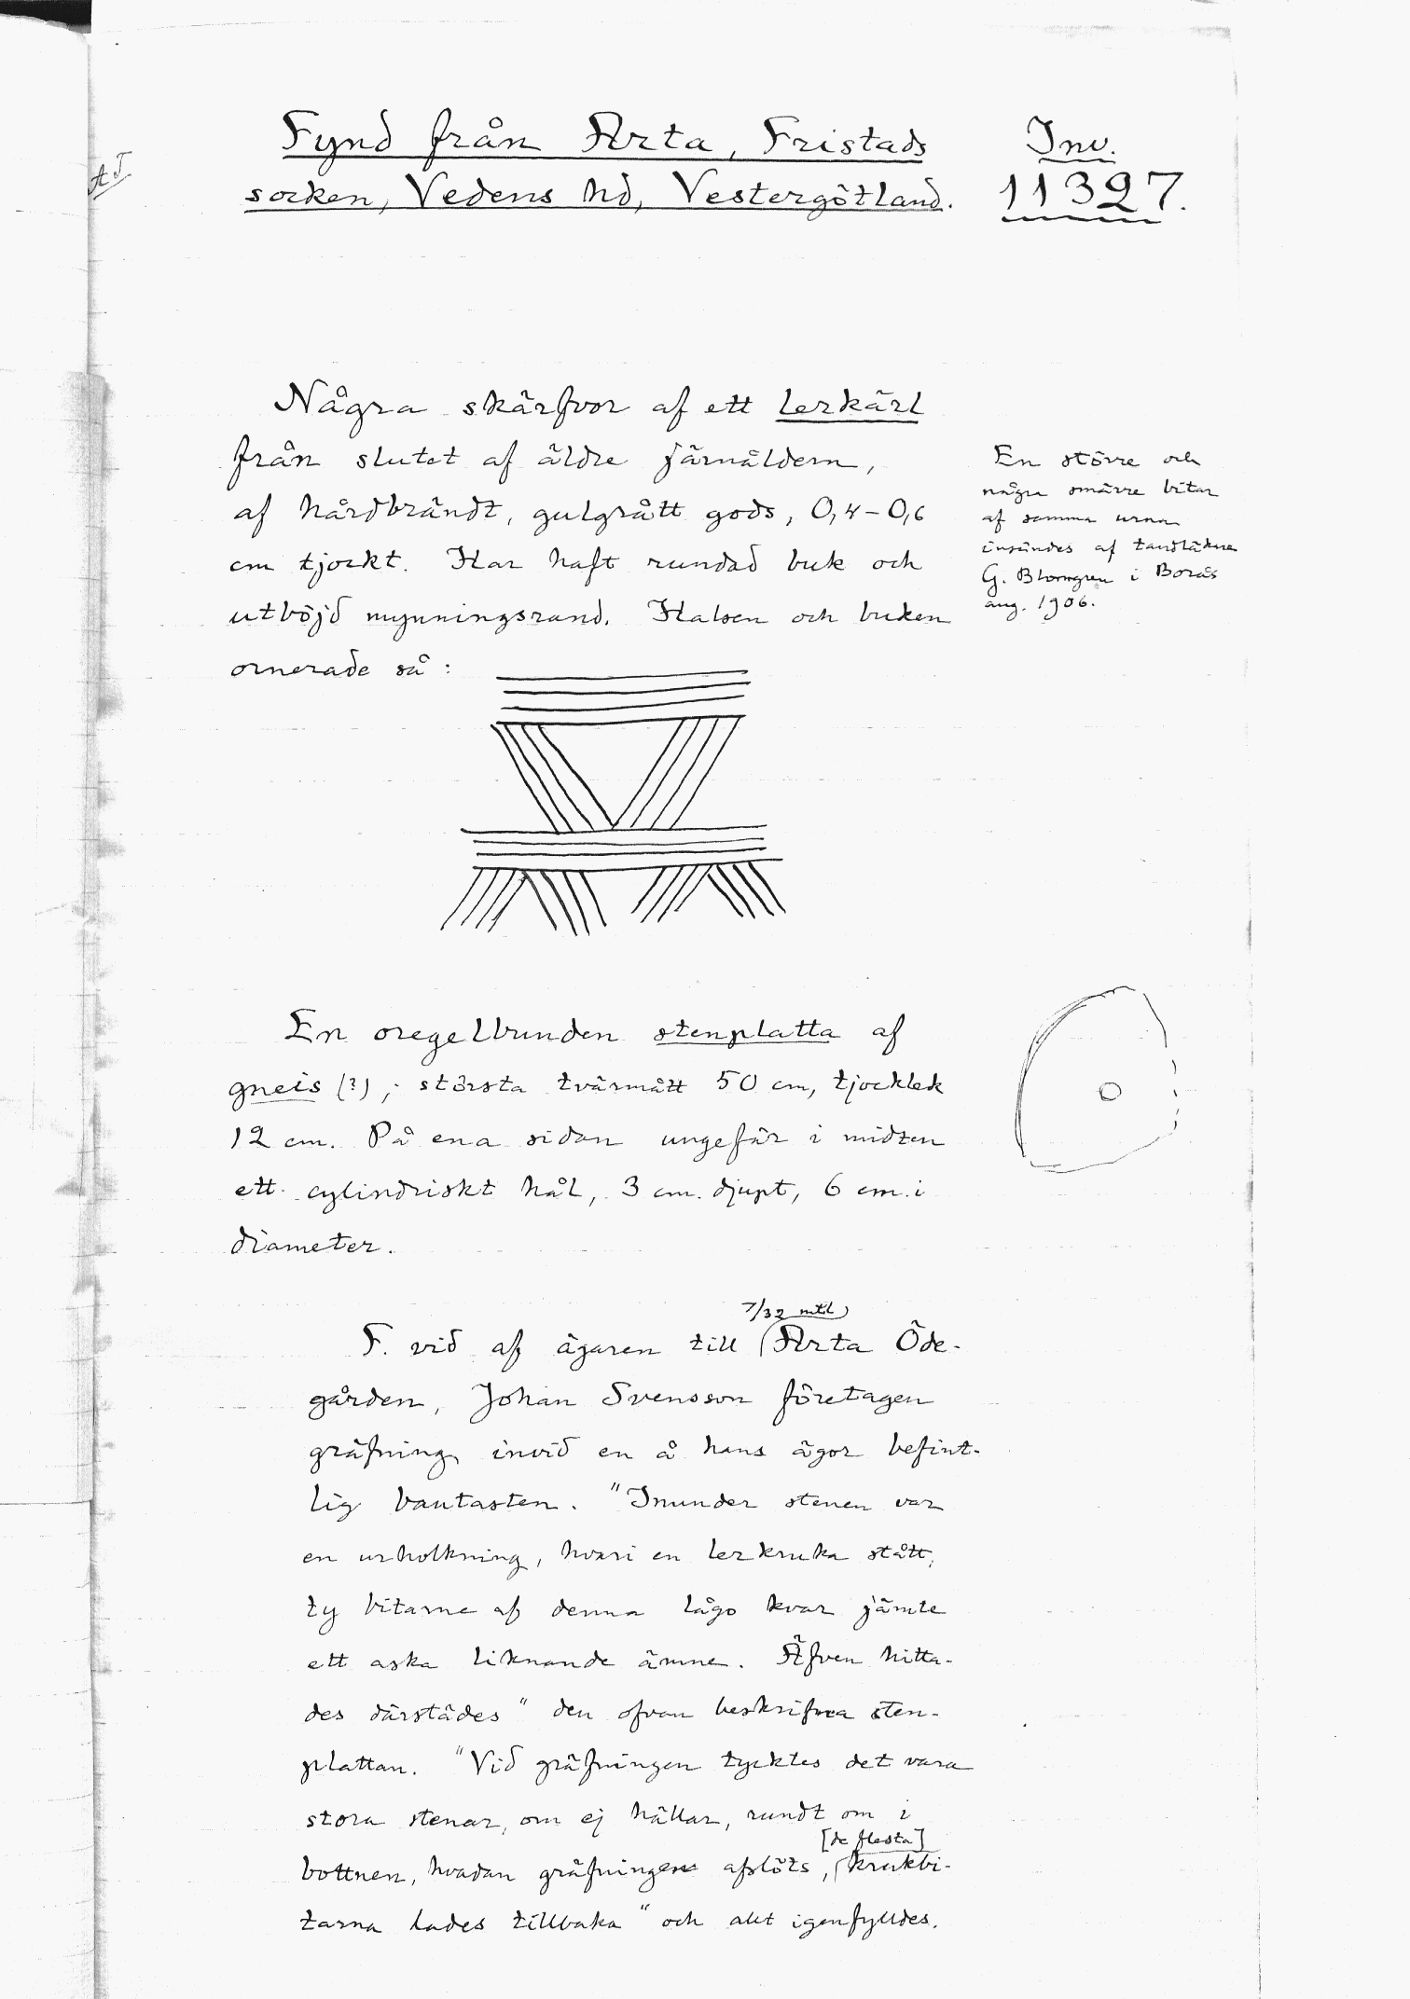 Fynd från Arta, Fristads
socken, Vedens hd, Vestergötland.
Inv.
11327.
Några skärfvor af ett lerkärl
från slutet af äldre järnåldern,
af hårdbrändt, gulgrått gods, 0,4–0,6
cm tjockt. Har haft rundad buk och
utböjd mynningsrand. Halsen och buken
ornerade så :
En större och
några smärre bitar
af samma urna
insändes af tandläkare
G. Blomgren i Borås
aug. 1906.
En oregelbunden stenplatta af
gneis (?); största tvärmått 50 cm, tjocklek
12 cm. På ena sidan ungefär i midten
ett cylindriskt hål, 3 cm. djupt, 6 cm. i
diameter.
7/32 mtl
F. vid af ägaren till Arta Öde-
gården, Johan Svensson företagen
gräfning invid en å hans ägor befint-
lig bautasten. "Inunder stenen var
en urholkning, hvari en lerkruka stått,
ty bitarne af denna lågo kvar jämte
ett aska liknande ämne. Äfven hitta-
des därstädes" den ofvan beskrifna sten-
plattan. "Vid gräfningen tycktes det vara
stora stenar, om ej hällar, rundt om i
[de flesta]
bottnen, hvadan gräfningen afslöts, krukbi-
tarna lades tillbaka" och allt igenfylldes.